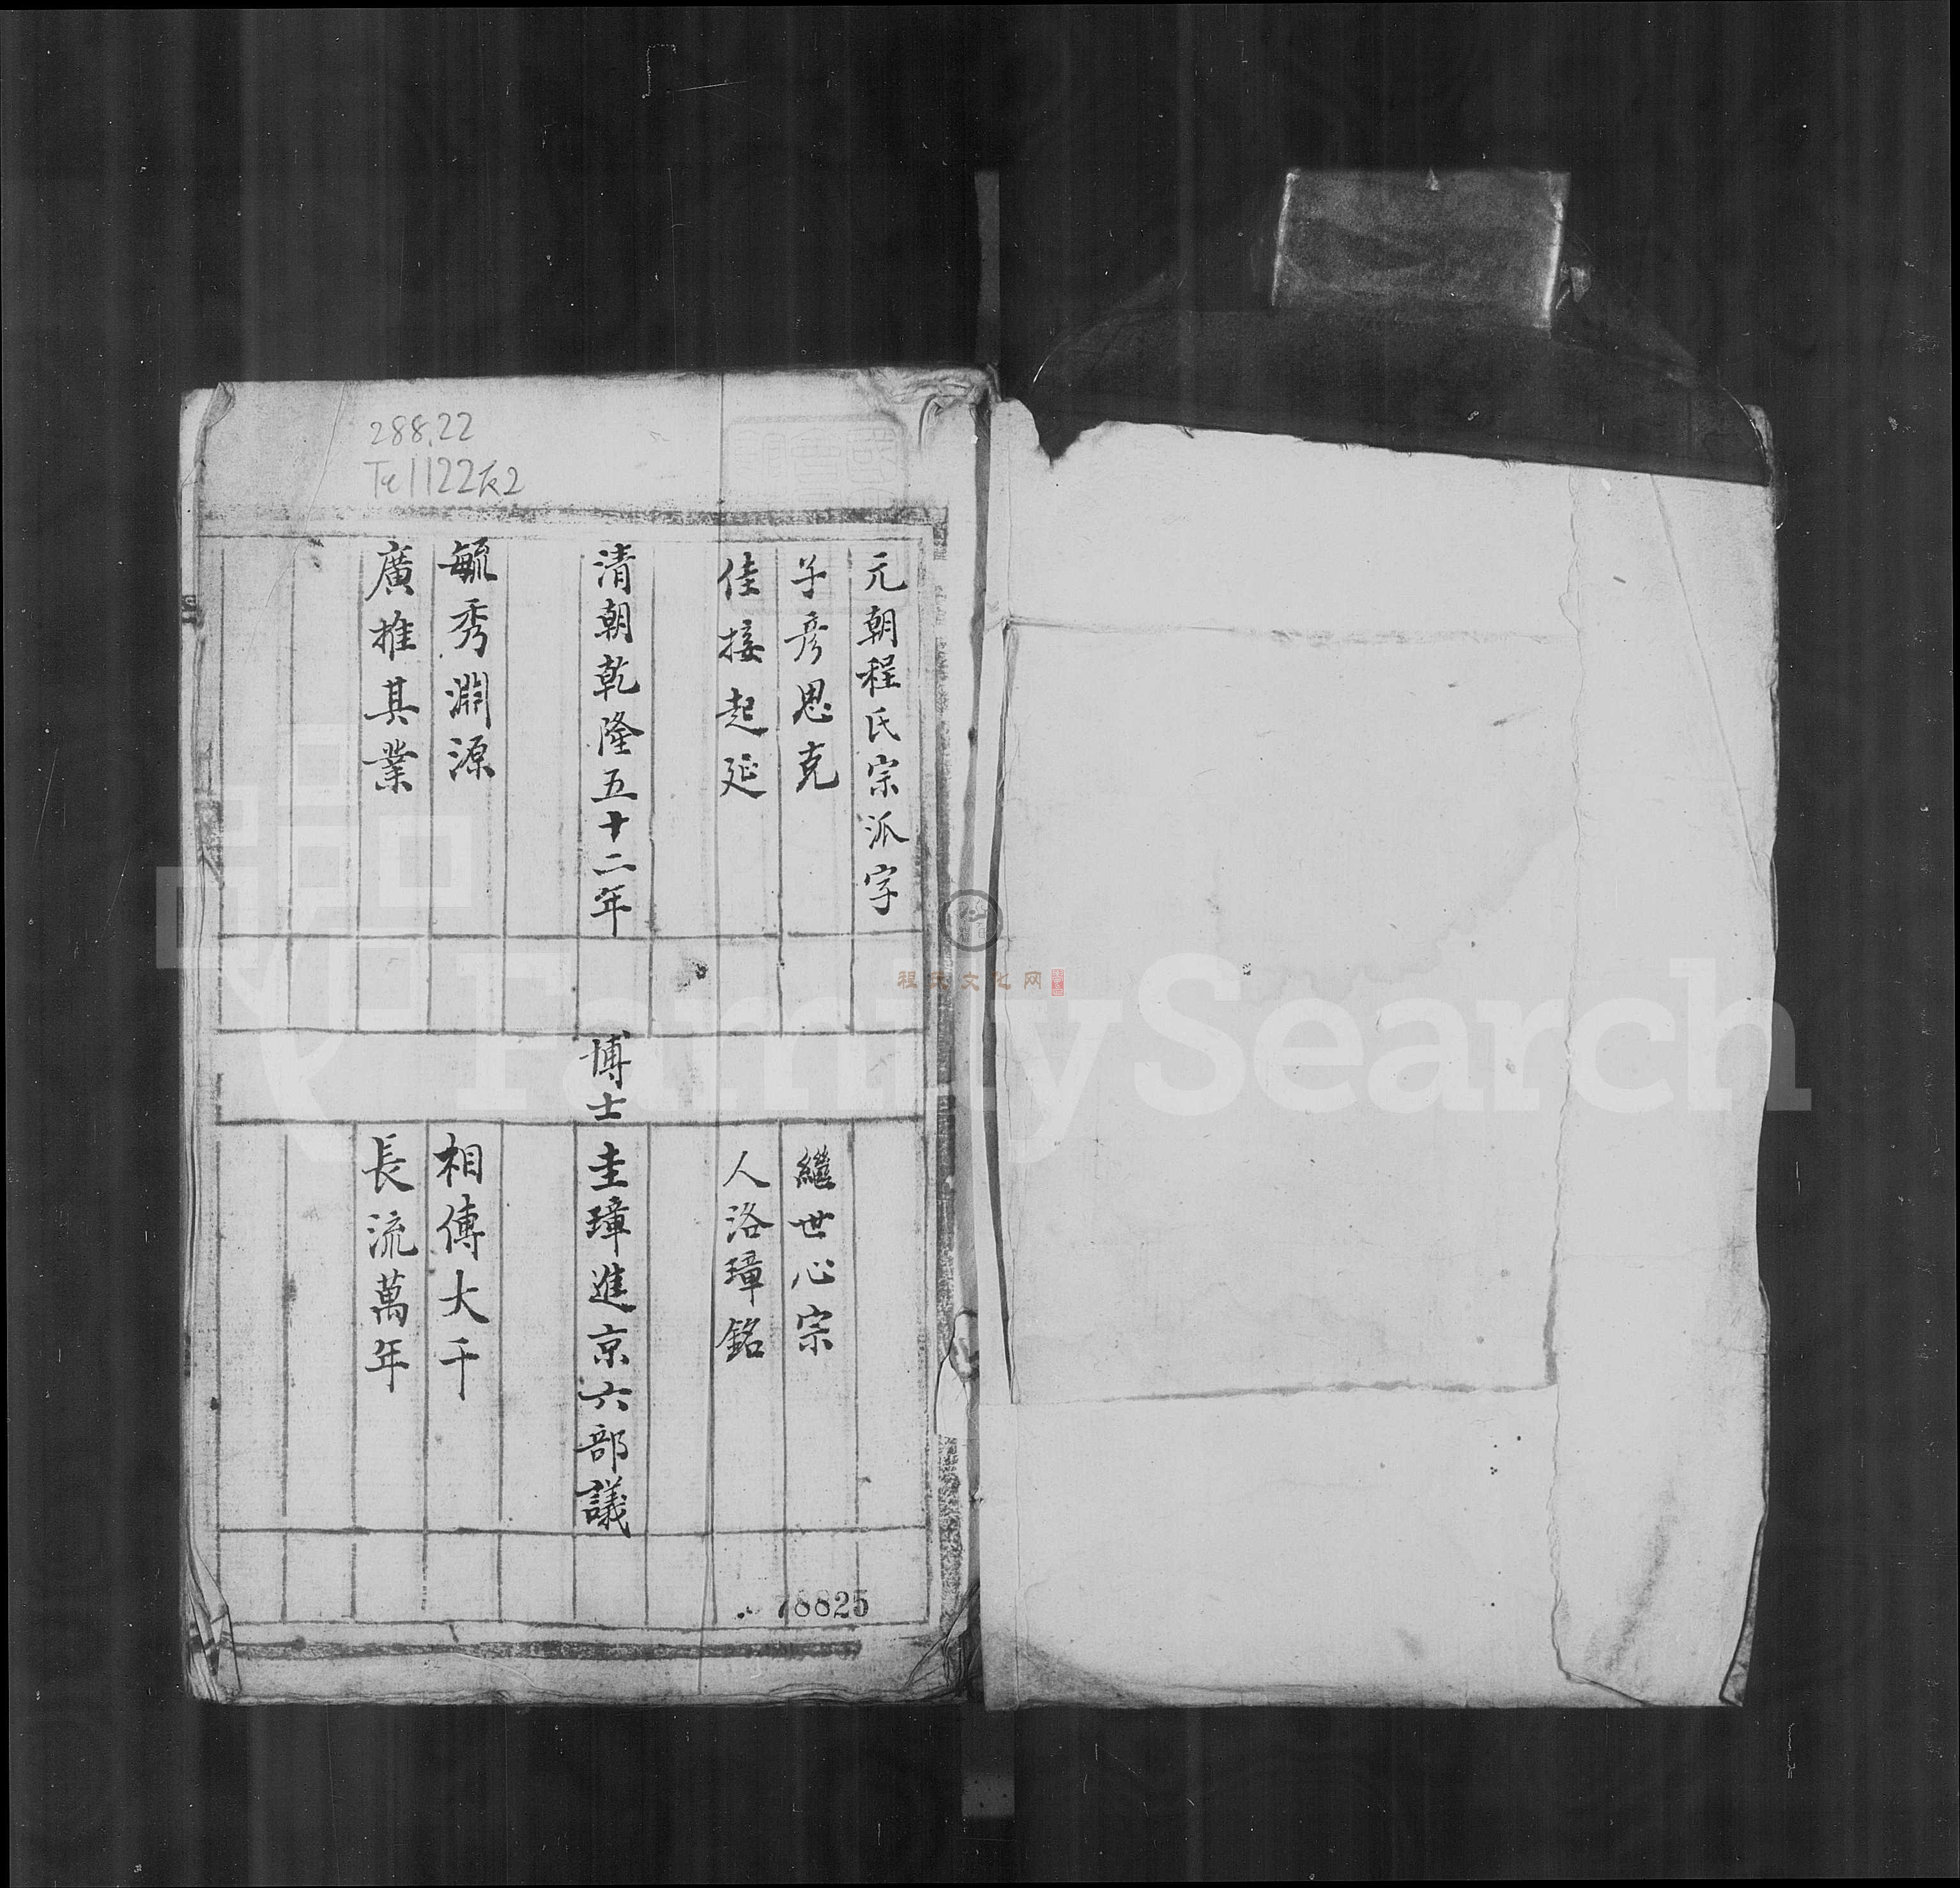 288.22
Te1122
元朝程氏宗派字
子彥思克 繼世心宗
佳接起延 人洛璋銘
清朝乾隆五十二年 博士 圭璋進京六部議
毓秀淵源 相傳大千
廣推其業 長流萬年
78825
程氏文化网
FamilySearch